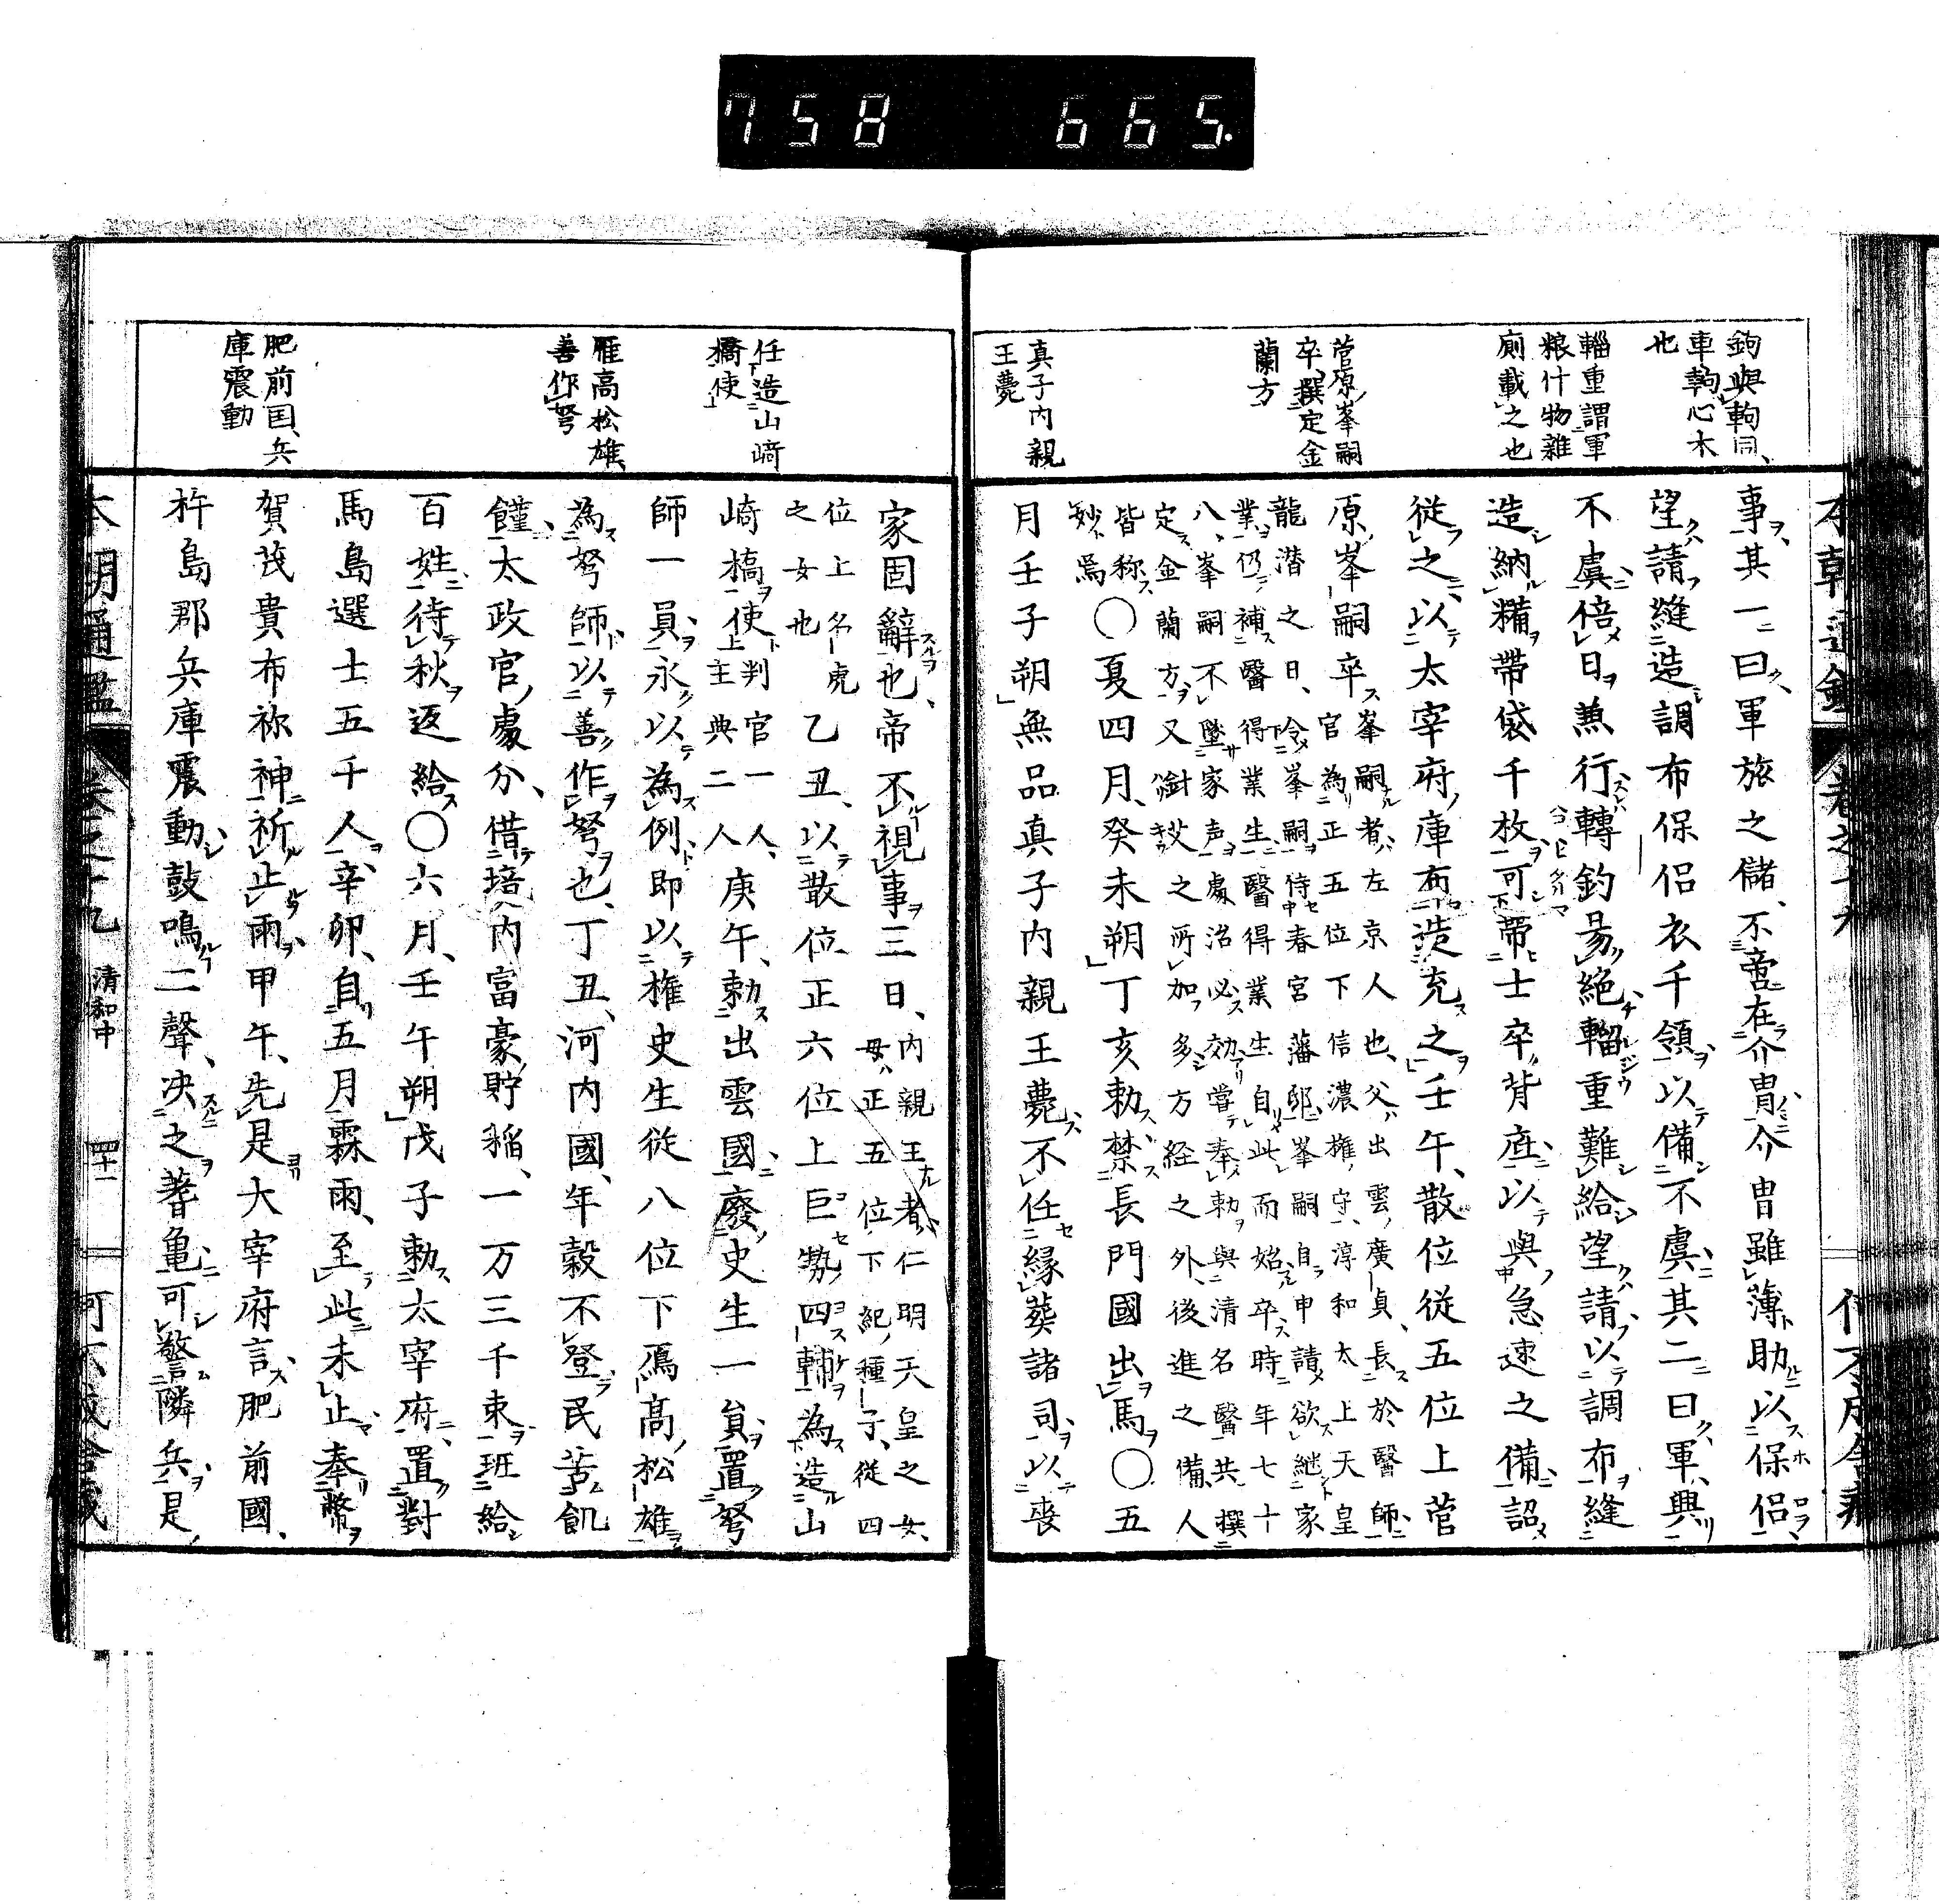 758 665.
鉤與軥同、
車軥心木
也
輜重謂軍
粮什物雜
廁載之也
菅原峯嗣
卒、撰定金
蘭方
真子内親
王薨
事其一曰軍旅之儲、不啻在介冑介冑雖薄助以保侶
望請縫造調布保侶衣千領以備不虞其二曰軍興
不虞倍日兼行轉釣曷絶輜重難給望請以調布縫
造納糒帶袋千枚可帶士卒背庶以與急速之備詔
従之以太宰府庫布造充之壬午散位從五位上菅
原峯嗣卒
峯嗣者左京人也父出雲廣貞長於醫師
官為正五位下信濃権守淳和太上天皇
龍潜之日、令峯嗣侍春宮藩邸峯嗣自申請欲継家
業仍補醫得業生醫得業生自此而始卒時年七十
八、峯嗣不墜家声處治必効嘗奉勅與清名醫共撰
定金蘭方又針艾之所加多方経之外、後進之備、人
皆称
妙焉
○夏四月癸未朔丁亥勅禁長門國出馬○五
月壬子朔無品真子内親王薨不任縁葬諸司以喪
任造山﨑
橋使
雁高松雄、
善作弩
肥前国、兵
庫震動
家固辭也帝不視事三日、
内親王者仁明天皇之女、
母正五位下紀種子、從四
位上名虎
之女也
乙丑、以散位正六位上巨勢四輔為造山
崎橋使
判官一人、
主典二人
庚午、勅出雲國廢史生一員置弩
師一員永以為例即以権史生従八位下鴈高松雄
為弩師以善作弩也丁丑、河内國、年穀不登民苦飢
饉太政官處分、借培内富豪貯稲、一万三千束班給
百姓待秋返給○六月、壬午朔戊子勅太宰府置對
馬島選士五千人辛卯、自五月霖雨、至此未止奉幣
賀茂貴布祢神祈止雨甲午、先是大宰府言肥前國、
杵島郡兵庫震動鼓鳴二聲、决之蓍亀可警隣兵是
本朝通鑑 卷之十九 清和中 四十一